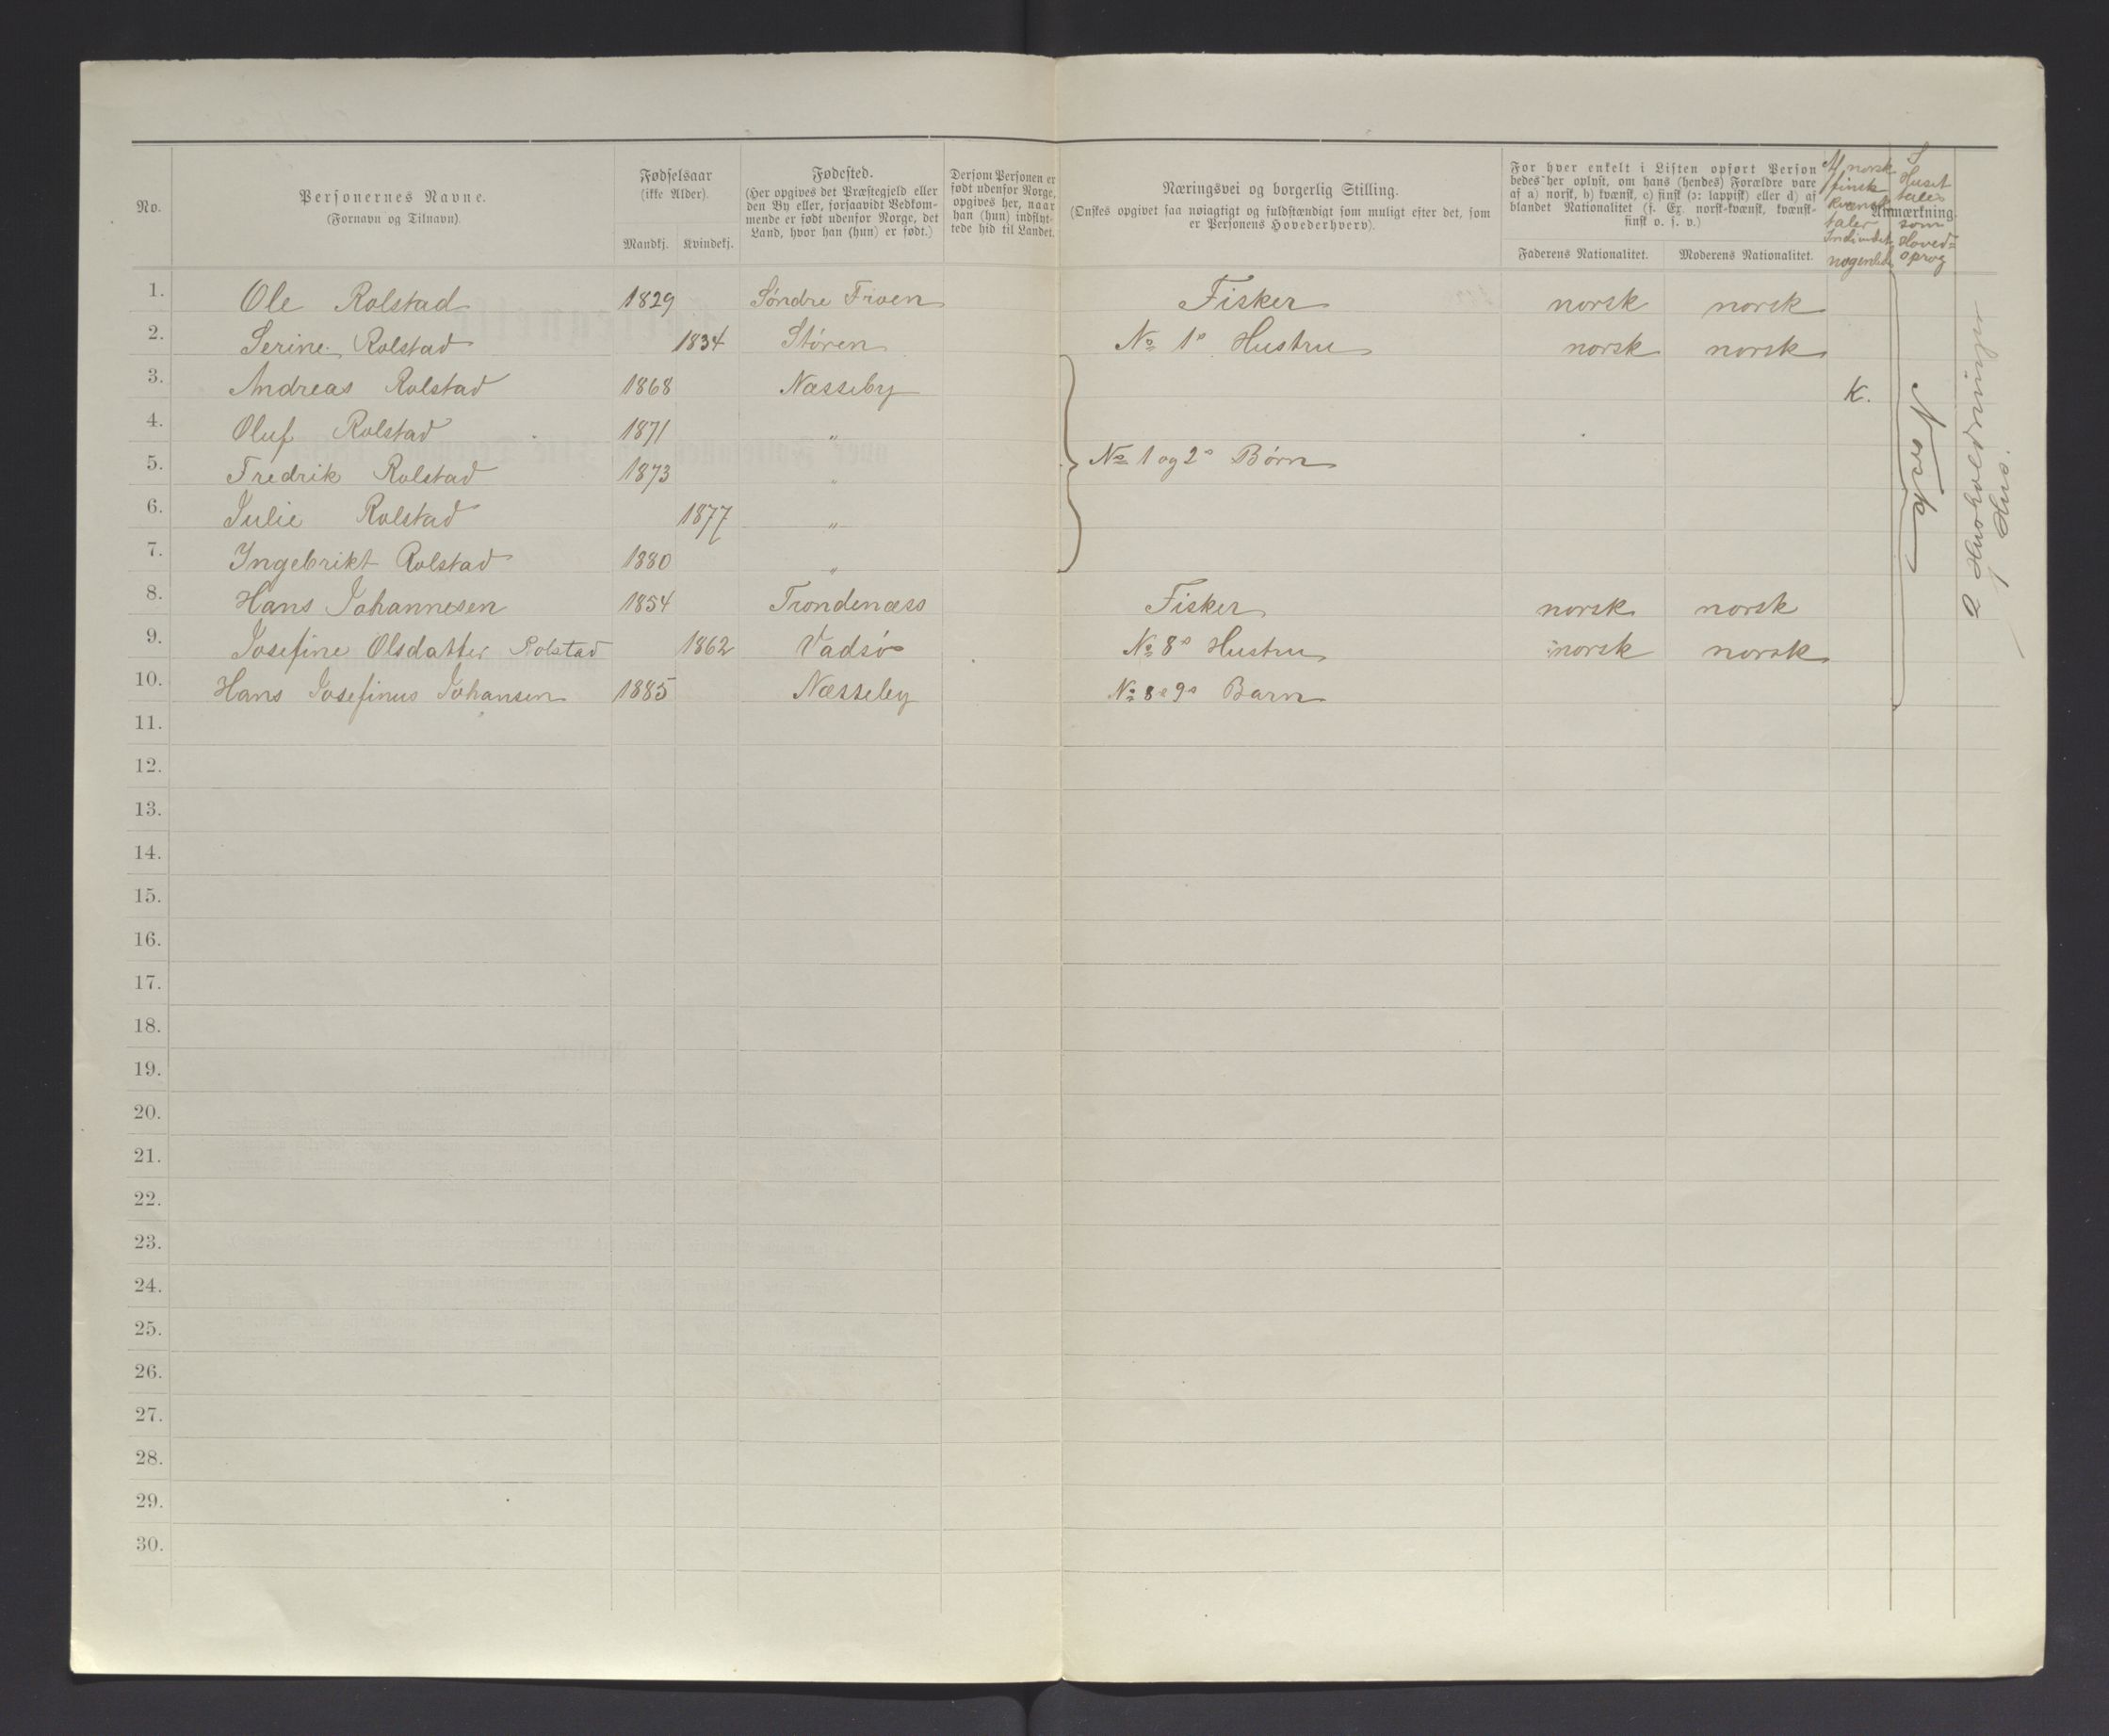 No.
Personernes Navne.
(Fornavn og Tilnavn).
Fødselsaar
(ikke Alder).
Mandkj. Kvindekj.
Fødested.
(Her opgives det Præstegjeld eller
den By eller, forsaavidt Vedkom-
mende er født udenfor Norge, det
Land, hvor han (hun) er født.)
Dersom Personen er
født udenfor Norge,
opgives her, naar
han (hun) indflyt-
tede hid til Landet.
Næringsvei og borgerlig Stilling.
(Ønskes opgivet saa nøiagtigt og fuldstændigt som muligt efter det, som
er Personens Hovederhverv).
For hver enkelt i Listen opført Person
bedes her oplyst, om hans (hendes) Forældre vare
af a) norsk, b) kvænsk, c) finsk (ɔ: lappisk) eller d) af
blandet Nationalitet (f. Ex. norsk-kvænsk, kvænsk-
finsk o. s. v.)
Faderens Nationalitet. Moderens Nationalitet.
norsk
finsk
kvensk
taler
nogenlede
Anmærkning.
I
Huset
tales
som
Hoved=
sprog
1. Ole Rolstad 1829 Søndre Froen Fisker norsk norsk
2. Serine Rolstad 1834 Støren No 1s Hustru norsk norsk
3. Andreas Rolstad 1868 Næsseby K.
4. Oluf Rolstad 1871 "
5. Fredrik Rolstad 1873 " No 1 og 2s Børn
6. Julie Rolstad 1877 "
7. Ingebrikt Rolstad 1880 "
8. Hans Johannesen 1854 Trondenæss Fisker norsk norsk
9. Josefine Olsdatter Rolstad 1862 Vadsø No 8s Hustru norsk norsk
10. Hans Josefinus Johansen 1885 Næsseby No 8 o 9s Barn
Norsk
2 Husholdninger
1 Hus.
11.
12.
13.
14.
15.
16.
17.
18.
19.
20.
21.
22.
23.
24.
25.
26.
27.
28.
29.
30.